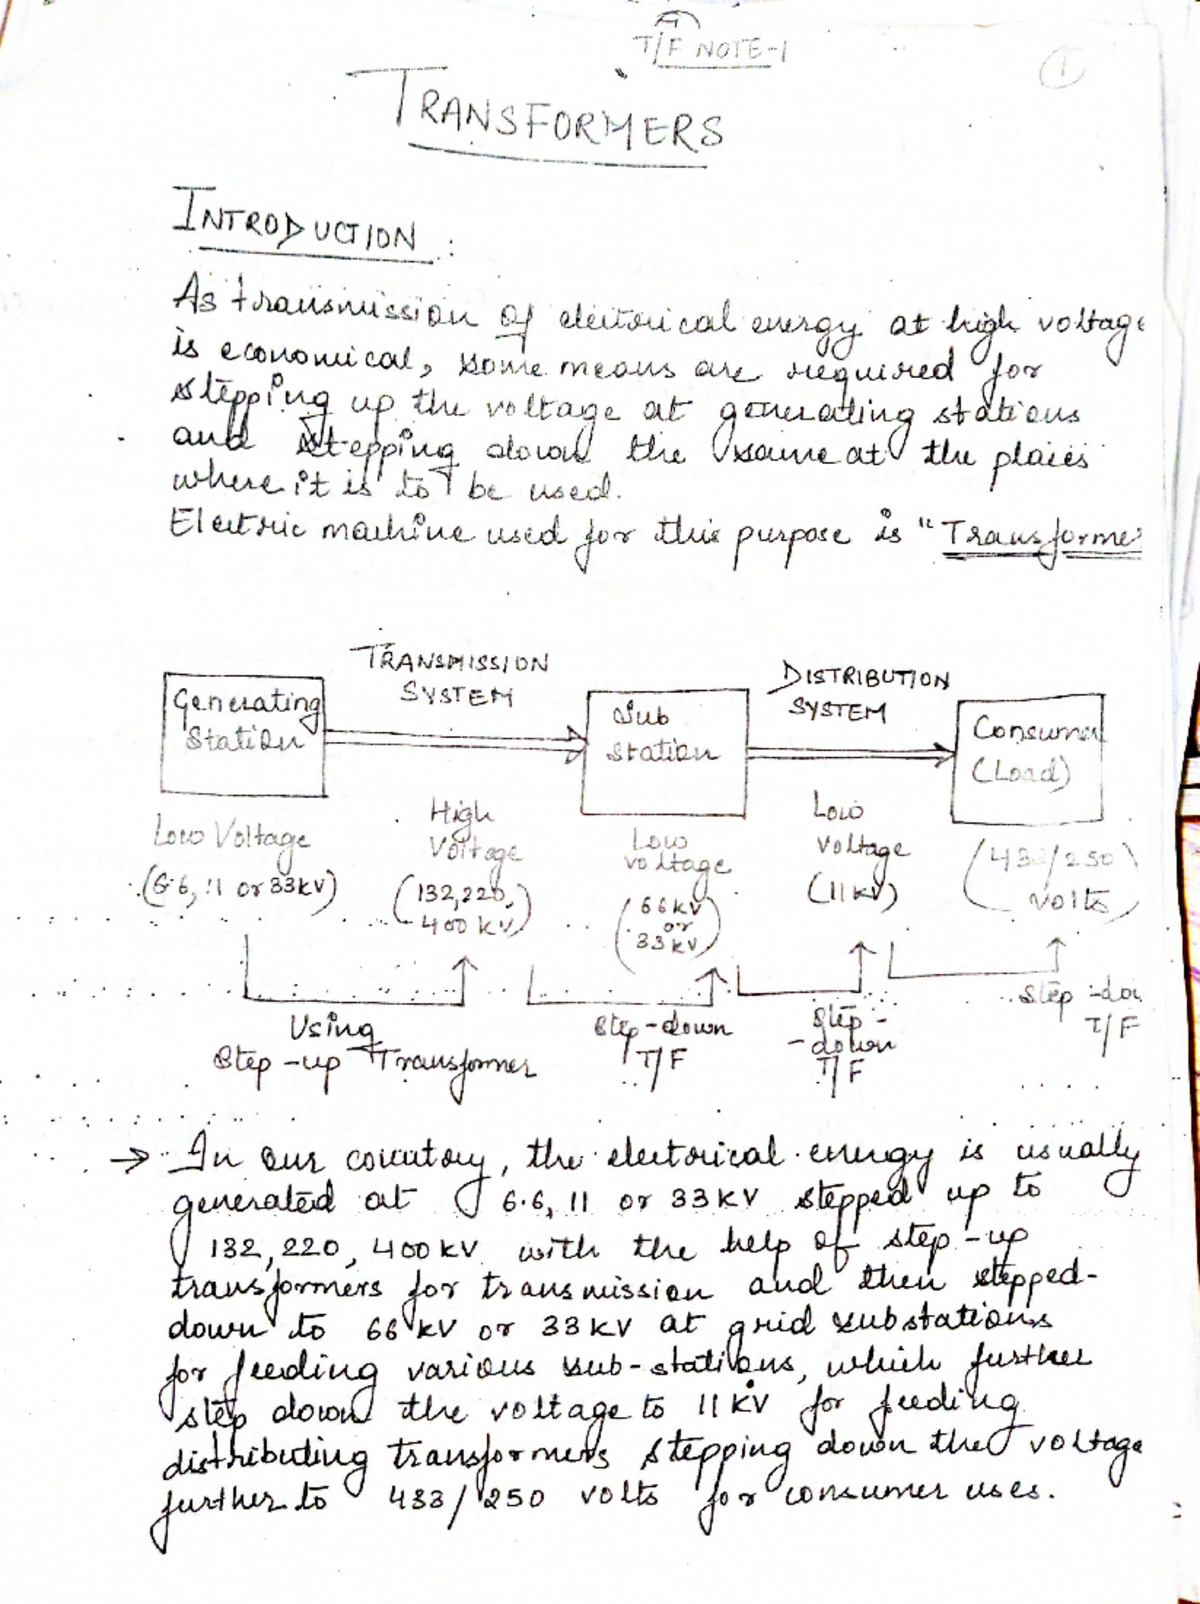 A
T/F NOTE-1
1
TRANSFORMERS
INTRODUCTION :
As transmission of electrical energy at high voltage
is economical, some means are required for
stepping up the voltage at generating stations
and stepping down the same at the places
where it is to be used.
Electric machine used for this purpose is "Transformer
TRANSMISSION
SYSTEM
DISTRIBUTION
SYSTEM
Generating
Station
Sub
station
Consumer
(Load)
Low Voltage
(6.6, 11 or 33kV)
High
Voltage
(132,220,
400 kV)
Low
voltage
(66kV
or
33kV)
Low
voltage
(11kV)
(433/250)
volts
Using
Step-up Transformer
Step-down
T/F
Step-
-down
T/F
Step-dow
T/F
→ In our country, the electrical energy is usually
generated at 6.6, 11 or 33kV stepped up to
132, 220, 400kV with the help of step-up
transformers for transmission and then stepped-
down to 66kV or 33kV at grid substations
for feeding various sub-stations, which further
step down the voltage to 11kV for feeding
distributing transformers stepping down the voltage
further to 433/250 volts for consumer uses.